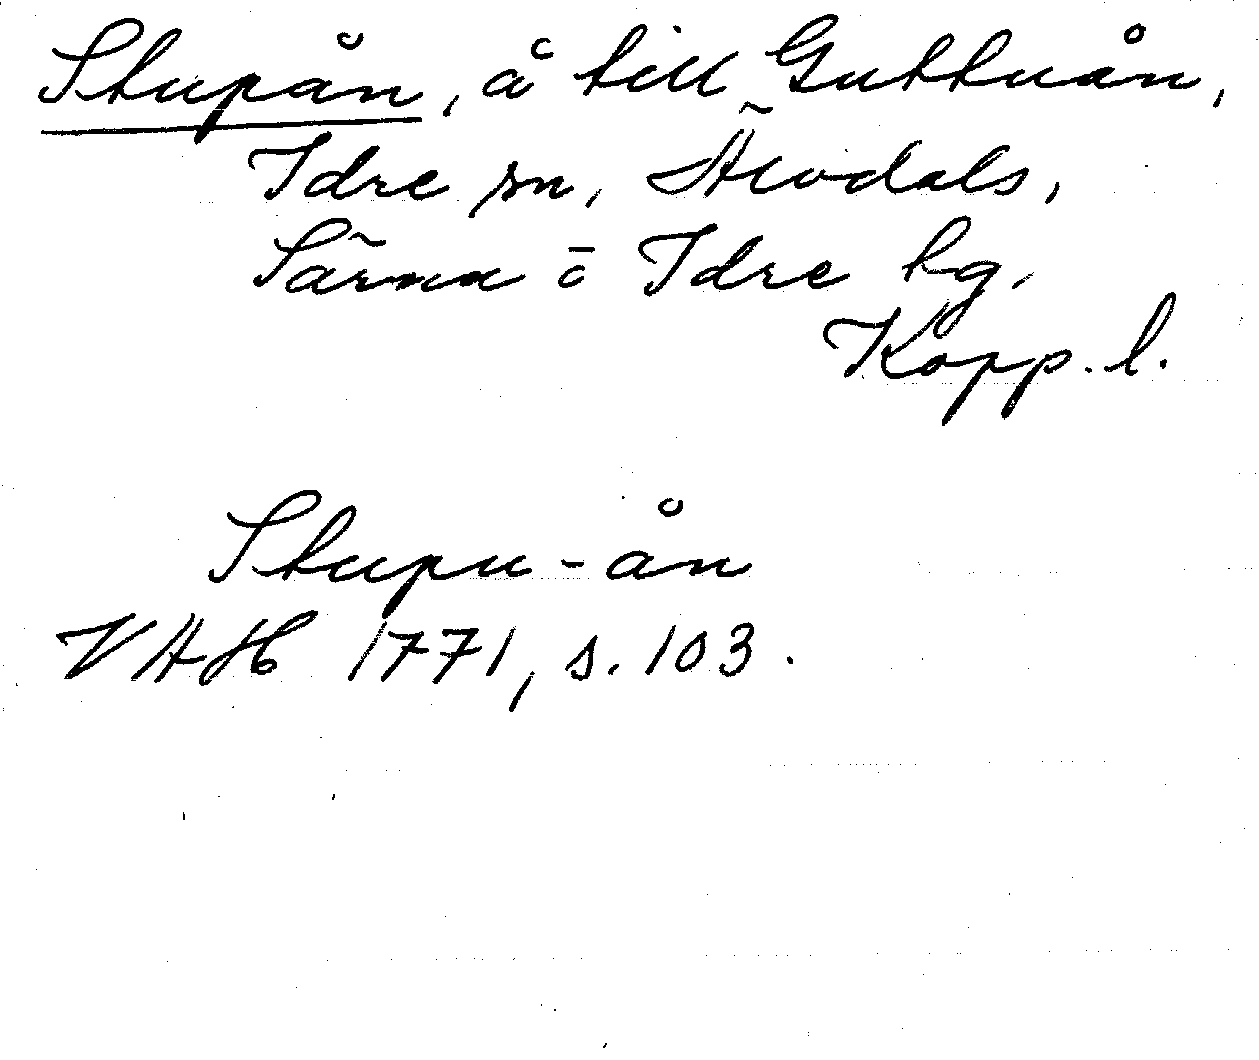 Stupån, å till Guttuån,
Idre sn, Älvdals,
Särna o Idre tg,
Kopp. l.
Stupu-ån
VAH 1771, s. 103.